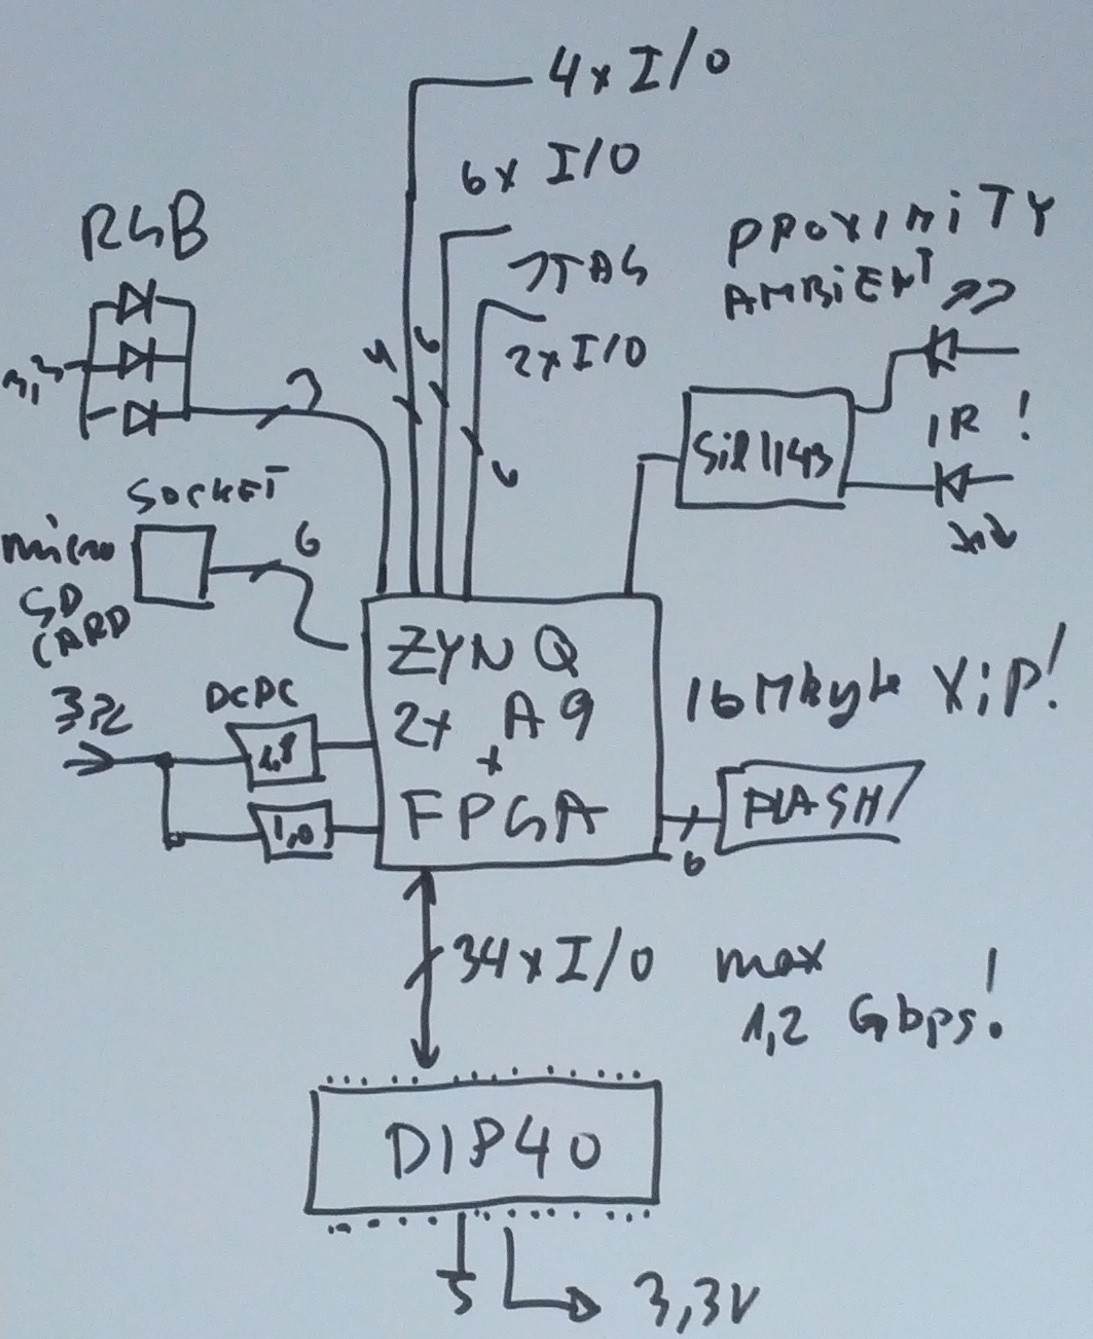 4x I/O
6x I/O
RGB
JTAG
2x I/O
PROXIMITY
AMBIENT
3,3
3
4
6
6
IR !
Sil1143
SOCKET
micro
SD
CARD
6
ZYNQ
2x A9
+
FPGA
DCDC
1,8
1,0
16Mbyte XiP!
FLASH
6
34x I/O max
1,2 Gbps!
DIP40
3,3V